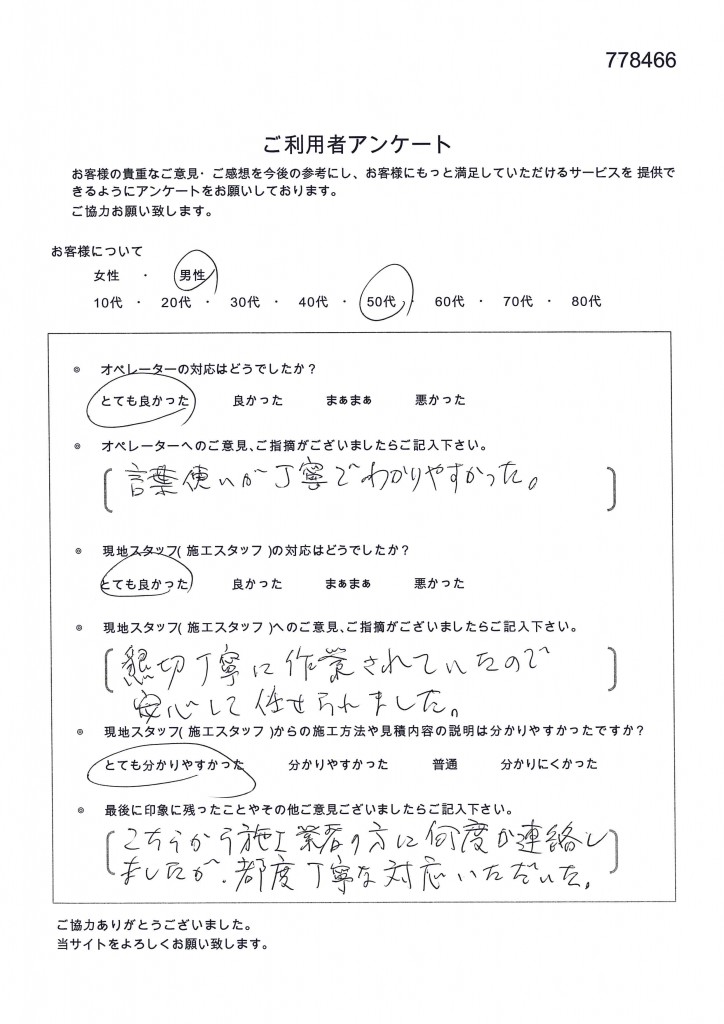 778466
ご利用者アンケート
お客様の貴重なご意見・ご感想を今後の参考にし、お客様にもっと満足していただけるサービスを 提供で
きるようにアンケートをお願いしております。
ご協力お願い致します。
お客様について
女性 ・ 男性
10代 ・ 20代 ・ 30代 ・ 40代 ・ 50代 ・ 60代 ・ 70代 ・ 80代
◎ オペレーターの対応はどうでしたか？
とても良かった 良かった まぁまぁ 悪かった
◎ オペレーターへのご意見、ご指摘がございましたらご記入下さい。
言葉使いが丁寧でわかりやすかった。
◎ 現地スタッフ( 施工スタッフ )の対応はどうでしたか？
とても良かった 良かった まぁまぁ 悪かった
◎ 現地スタッフ( 施工スタッフ )へのご意見、ご指摘がございましたらご記入下さい。
懇切丁寧に作業されていたので
安心して任せられました。
◎ 現地スタッフ( 施工スタッフ )からの施工方法や見積内容の説明は分かりやすかったですか？
とても分かりやすかった 分かりやすかった 普通 分かりにくかった
◎ 最後に印象に残ったことやその他ご意見ございましたらご記入下さい。
こちらから施工業者の方に何度か連絡し
ましたが、都度丁寧な対応いただいた。
ご協力ありがとうございました。
当サイトをよろしくお願い致します。